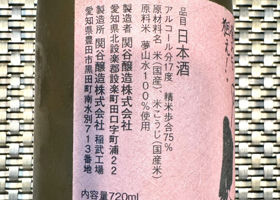 品目 日本酒
アルコール分17度 精米歩合75%
原材料名 米(国産)、米こうじ(国産米)
原料米 夢山水100%使用
製造者 関谷醸造株式会社
愛知県北設楽郡設楽町田口字町浦22
製造所 関谷醸造株式会社 稲武工場
愛知県豊田市黒田町南水別713番地
内容量720ml